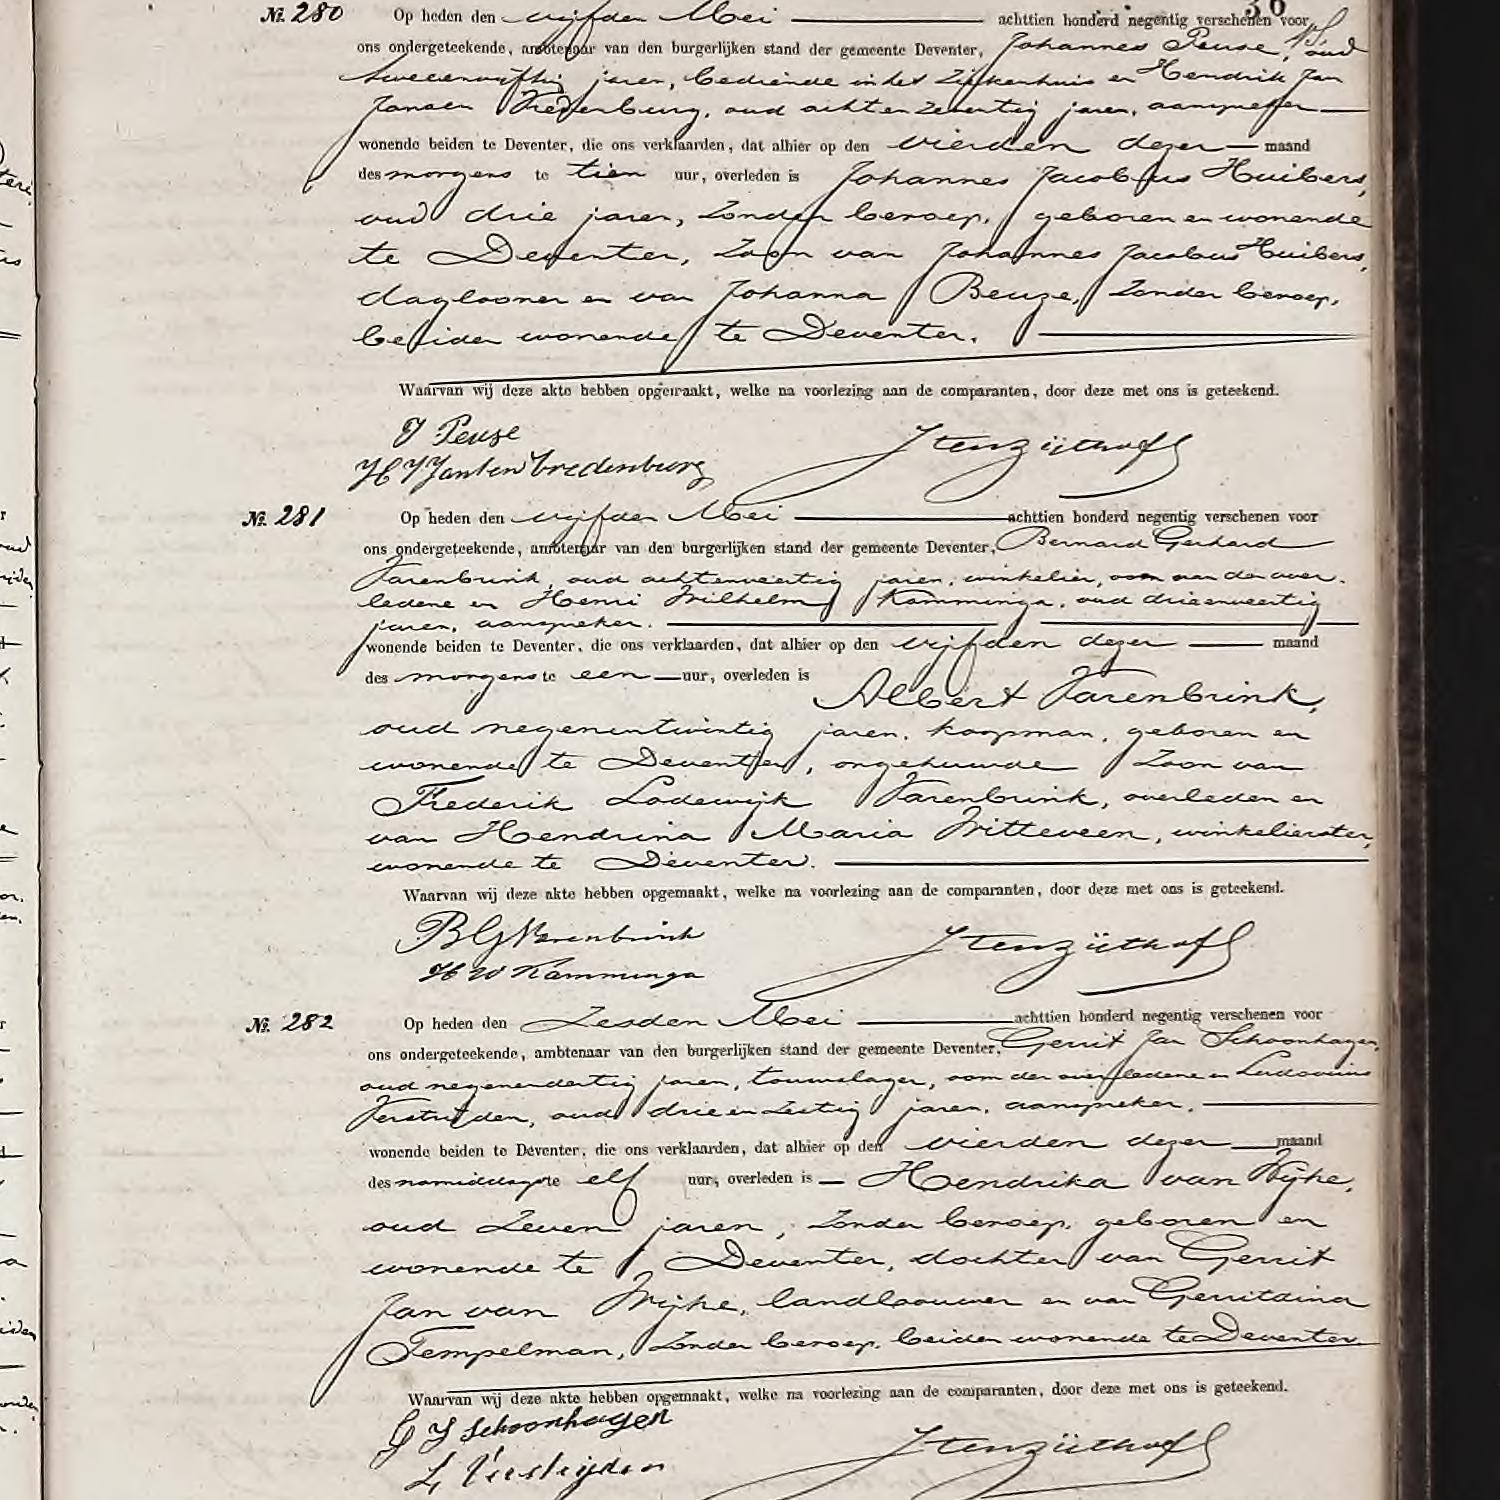 36
No. 280 Op heden den vijfden Mei achttien honderd negentig verschenen voor
ons ondergeteekende, ambtenaar van den burgerlijken stand der gemeente Deventer, Johannes Peuse, oud
tweeenvijftig jaren, bediende in het Ziekenhuis en Hendrik Jan
Jansen Vredenburg, oud acht en zeventig jaren, aanspreker
wonende beiden te Deventer, die ons verklaarden, dat alhier op den vierden dezer maand
des morgens te tien uur, overleden is Johannes Jacobus Huibers,
oud drie jaren, zonder beroep, geboren en wonende
te Deventer, zoon van Johannes Jacobus Huibers,
daglooner en van Johanna Beuze, zonder beroep,
beiden wonende te Deventer.
Waarvan wij deze akte hebben opgemaakt, welke na voorlezing aan de comparanten, door deze met ons is geteekend.
J Peuse
H J Jansen Vredenburg
No. 281 Op heden den vijfden Mei achttien honderd negentig verschenen voor
ons ondergeteekende, ambtenaar van den burgerlijken stand der gemeente Deventer, Bernard Gerhard
Varenbrink, oud achtenveertig jaren, winkelier, oom van den over-
ledene en Henri Wilhelm Kamminga, oud drieenveertig
jaren, aanspreker.
wonende beiden te Deventer, die ons verklaarden, dat alhier op den vijfden dezer maand
des morgens te een uur, overleden is Albert Varenbrink,
oud negenentwintig jaren, koopman, geboren en
wonende te Deventer, ongehuwde zoon van
Frederik Lodewijk Varenbrink, overleden en
van Hendrina Maria Witteveen, winkelierster,
wonende te Deventer.
Waarvan wij deze akte hebben opgemaakt, welke na voorlezing aan de comparanten, door deze met ons is geteekend.
B G Varenbrink
H W Kamminga
No. 282 Op heden den zesden Mei achttien honderd negentig verschenen voor
ons ondergeteekende, ambtenaar van den burgerlijken stand der gemeente Deventer, Gerrit Jan Schoonhagen,
oud negenendertig jaren, touwslager, oom der overledene en Ludovicus
Verstrijden, oud drie en zestig jaren, aanspreker,
wonende beiden te Deventer, die ons verklaarden, dat alhier op den vierden dezer maand
des namiddags te elf uur, overleden is Hendrika van Wijhe,
oud zeven jaren, zonder beroep, geboren en
wonende te Deventer, dochter van Gerrit
Jan van Wijhe, landbouwer en van Gerritdina
Tempelman, zonder beroep, beiden wonende te Deventer.
Waarvan wij deze akte hebben opgemaakt, welke na voorlezing aan de comparanten, door deze met ons is geteekend.
G J Schoonhagen
L Verstrijden